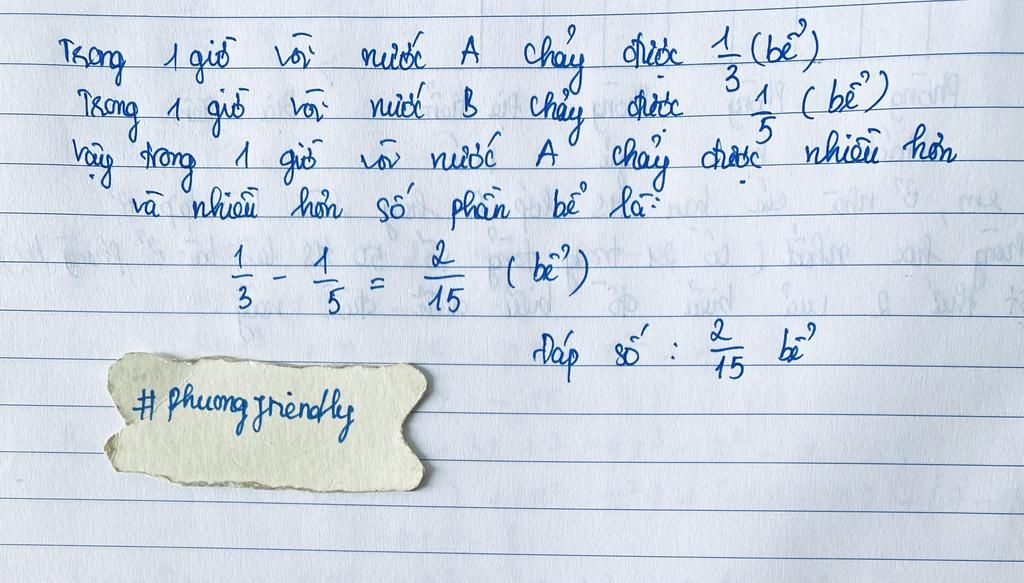 Trong 1 giờ vòi nước A chảy được 1/3 (bể)
Trong 1 giờ vòi nước B chảy được 1/5 (bể)
Vậy trong 1 giờ vòi nước A chảy được nhiều hơn
và nhiều hơn số phần bể là:
1/3 - 1/5 = 2/15 (bể)
Đáp số : 2/15 bể
# phuongfriendly